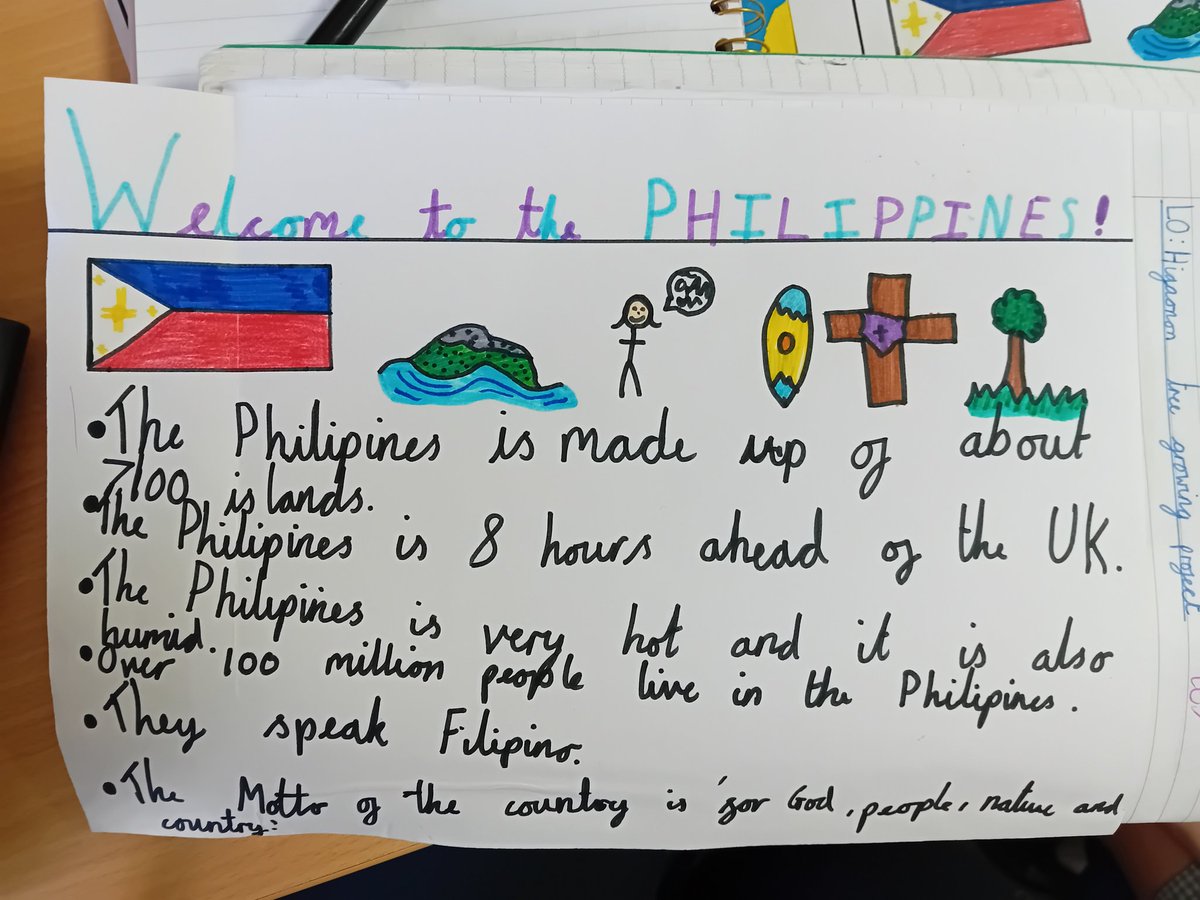 Welcome to the PHILIPPINES!
• The Philipines is made up of about
7100 islands.
• The Philipines is 8 hours ahead of the UK.
• The Philipines is very hot and it is also
humid.
• Over 100 million people live in the Philipines.
• They speak Filipino.
• The Motto of the country is 'for God, people, nature and
country.'
LO: Higaonon tree growing project